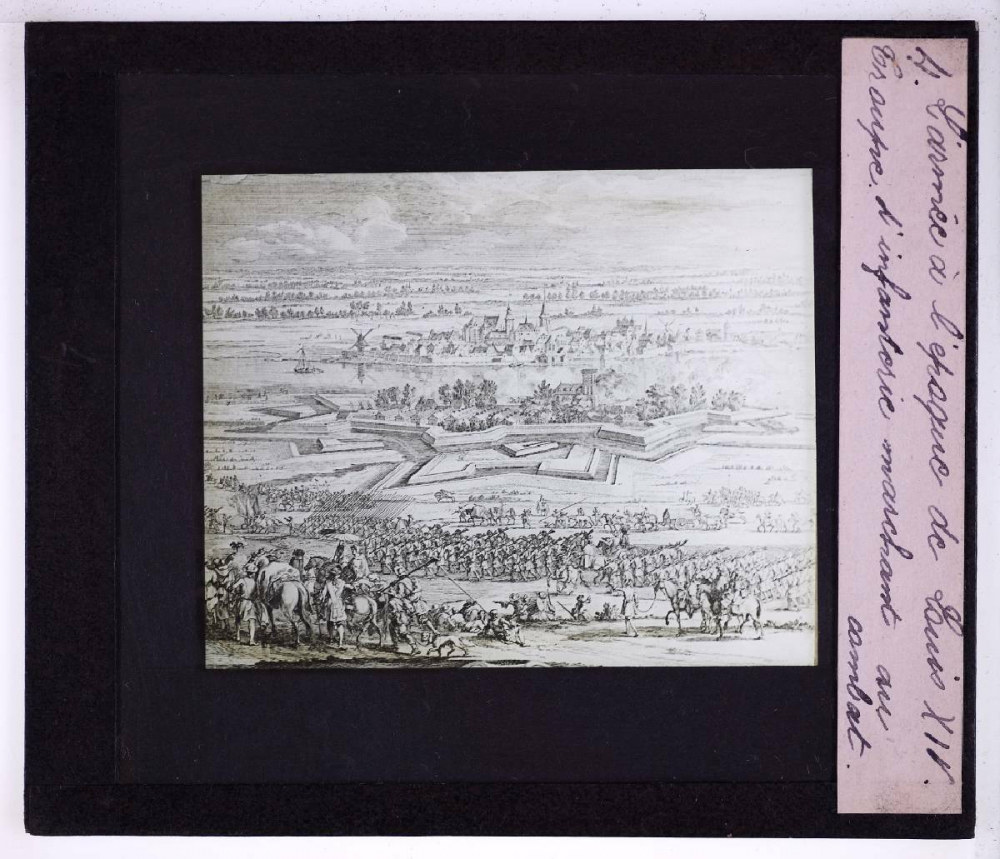 4. L'armée à l'époque de Louis XIV.
Troupe d'infanterie marchant au
combat.